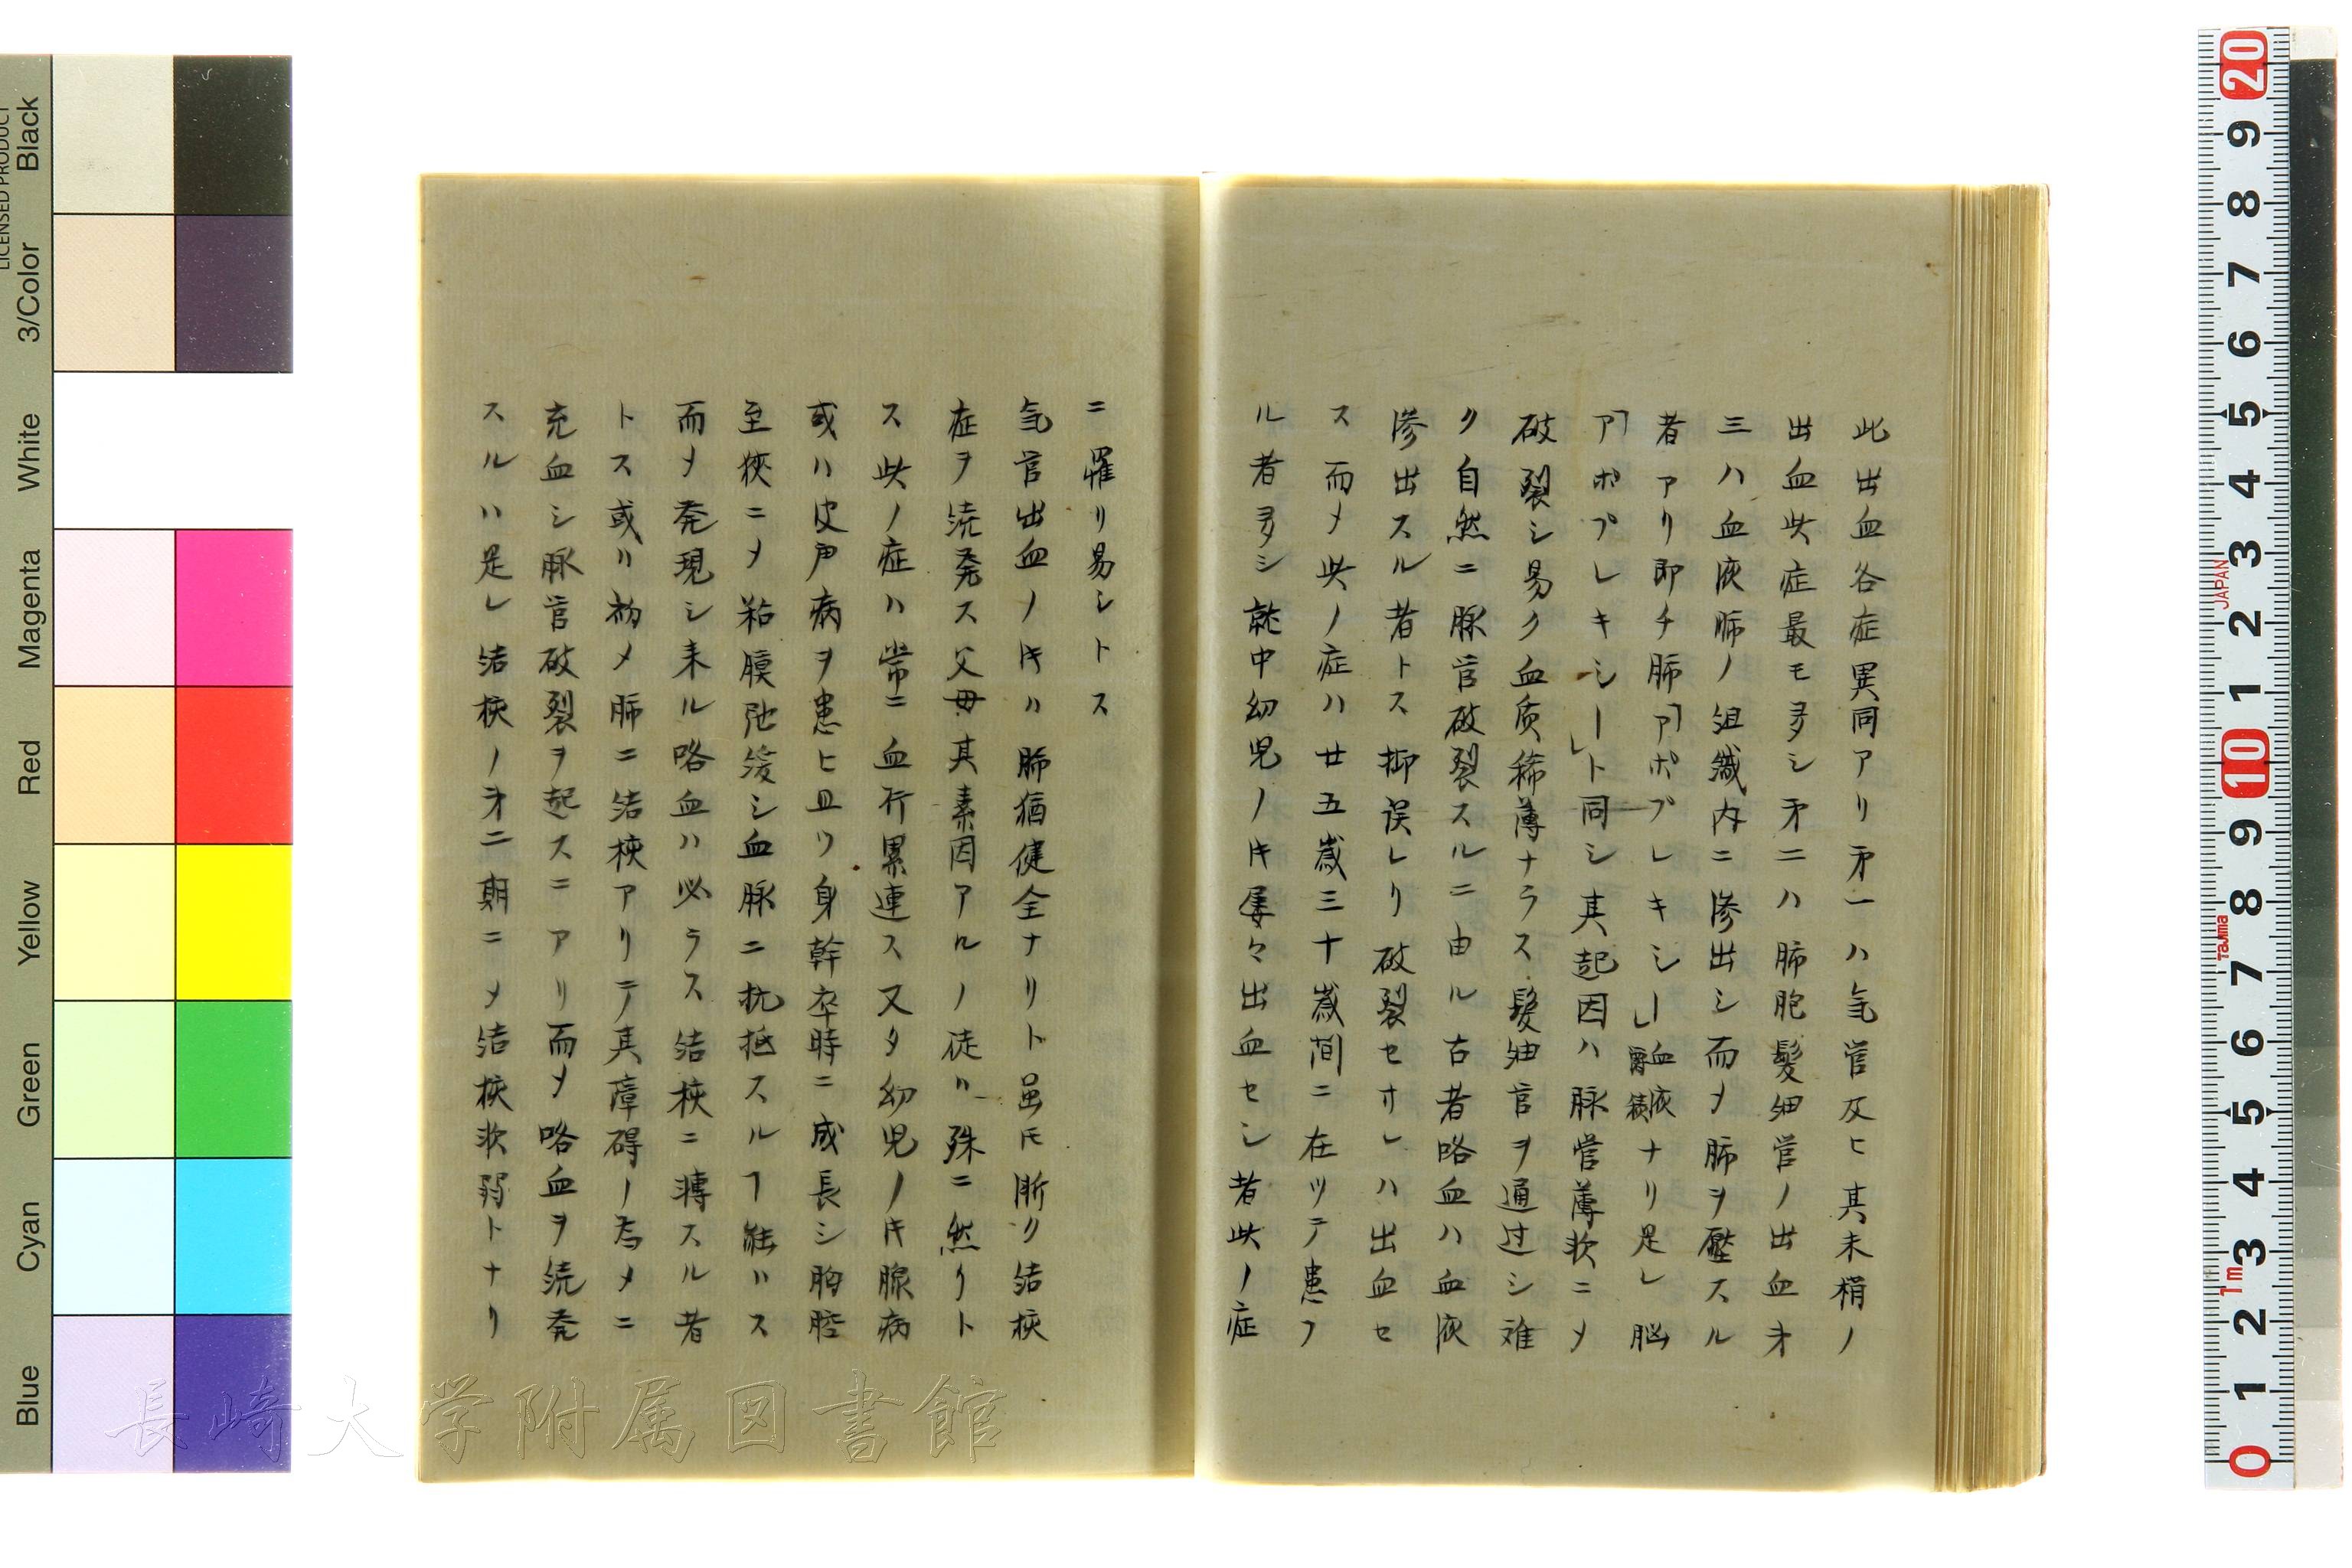 此出血各症異同アリ第一ハ気管及ヒ其末梢ノ
出血此症最モ多シ第二ハ肺胞髪細管ノ出血第
三ハ血液肺ノ組織内ニ滲出シ而メ肺ヲ壓スル
者アリ即チ肺「アポプレキシー」血液鬱積ナリ是レ脳
「アポプレキシー」ト同シ其起因ハ脉管薄軟ニメ
破裂シ易ク血质稀薄ナラス髪細官ヲ通过シ难
ク自然ニ脉官破裂スルニ由ル古者咯血ハ血液
滲出スル者トス抑误レリ破裂セサレハ出血セ
ス而メ此ノ症ハ廿五歳三十歳间ニ在ツテ患フ
ル者多シ就中幼児ノ䏍屡々出血セシ者此ノ症
ニ罹リ易シトス
気官出血ノ䏍ハ肺猶健全ナリト虽𪜈漸ク结核
症ヲ続発ス父母其素因アルノ徒ハ殊ニ然リト
ス此ノ症ハ常ニ血行累連ス又タ幼児ノ䏍腺病
或ハ皮肉病ヲ患ヒ且ツ身幹卒時ニ成長シ胸腔
至狹ニメ粘膜弛缓シ血脉ニ抗抵スルヿ能ハス
而メ発現シ来ル咯血ハ必ラス结核ニ轉スル者
トス或ハ初メ肺ニ结核アリテ其障碍ノ為メニ
充血シ脉官破裂ヲ起スニアリ而メ咯血ヲ続発
スルハ是レ结核ノ第二期ニメ结核软弱トナリ
長崎大学附属図書館
LICENSED PRODUCT
Black
3/Color
White
Magenta
Red
Yellow
Green
Cyan
Blue
20
9
8
7
6
5
4
3
2
1
10
9
8
7
6
5
4
3
2
1
0
JAPAN
Tajima
1m